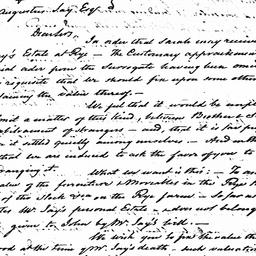 Augustus Jay, Esq.
Dear Sir,
In order that Sarah may receive
y's Estate at Rye — The Customary appraisement
ial order from the Surrogate having been omi
requisite that we should fix upon some other
taining the value thereof —
We feel that it would be
mit a matter of this kind, between Brother & S
ablishment of Strangers — and, that it is far
it settled quietly among ourselves. — And
that we are induced to ask the favor of you to
ranging it.
What we want is this: — To
value of the furniture & Moveables in the Rye
of the Stock &c on the Rye farm — so far as
ter Mr Jay's personal Estate — does not belong
given to John by Mr Jay's Will. —
We wish you to fix the value
ood at the time of Mr Jay's death — such valuation